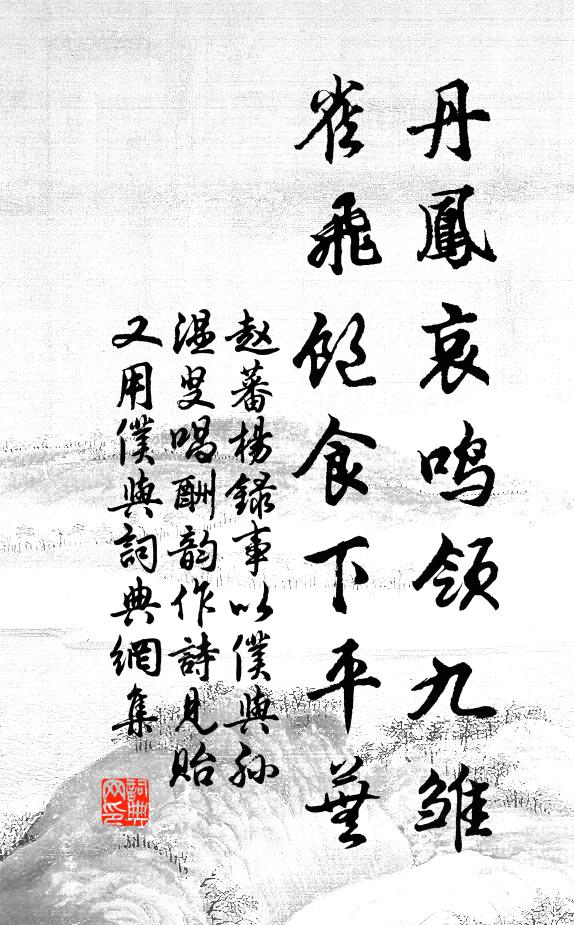 丹鳳哀鸣领九雏
雀飛飽食下平蕪
赵蕃楊録事以僕與孙
温叟唱酬韵作詩見贻
又用僕與詞典網集
詞典
网印